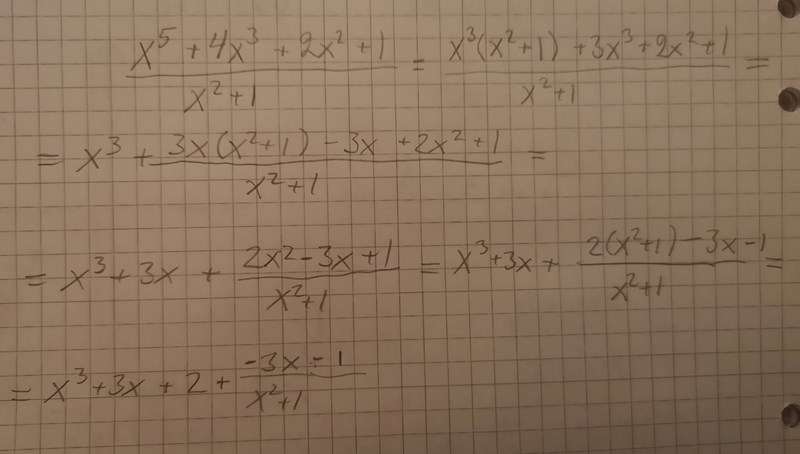 (x⁵ + 4x³ + 2x² + 1)/(x² + 1) = (x³(x² + 1) + 3x³ + 2x² + 1)/(x² + 1) =
= x³ + (3x(x² + 1) - 3x + 2x² + 1)/(x² + 1) =
= x³ + 3x + (2x² - 3x + 1)/(x² + 1) = x³ + 3x + (2(x² + 1) - 3x - 1)/(x² + 1) =
= x³ + 3x + 2 + (-3x - 1)/(x² + 1)